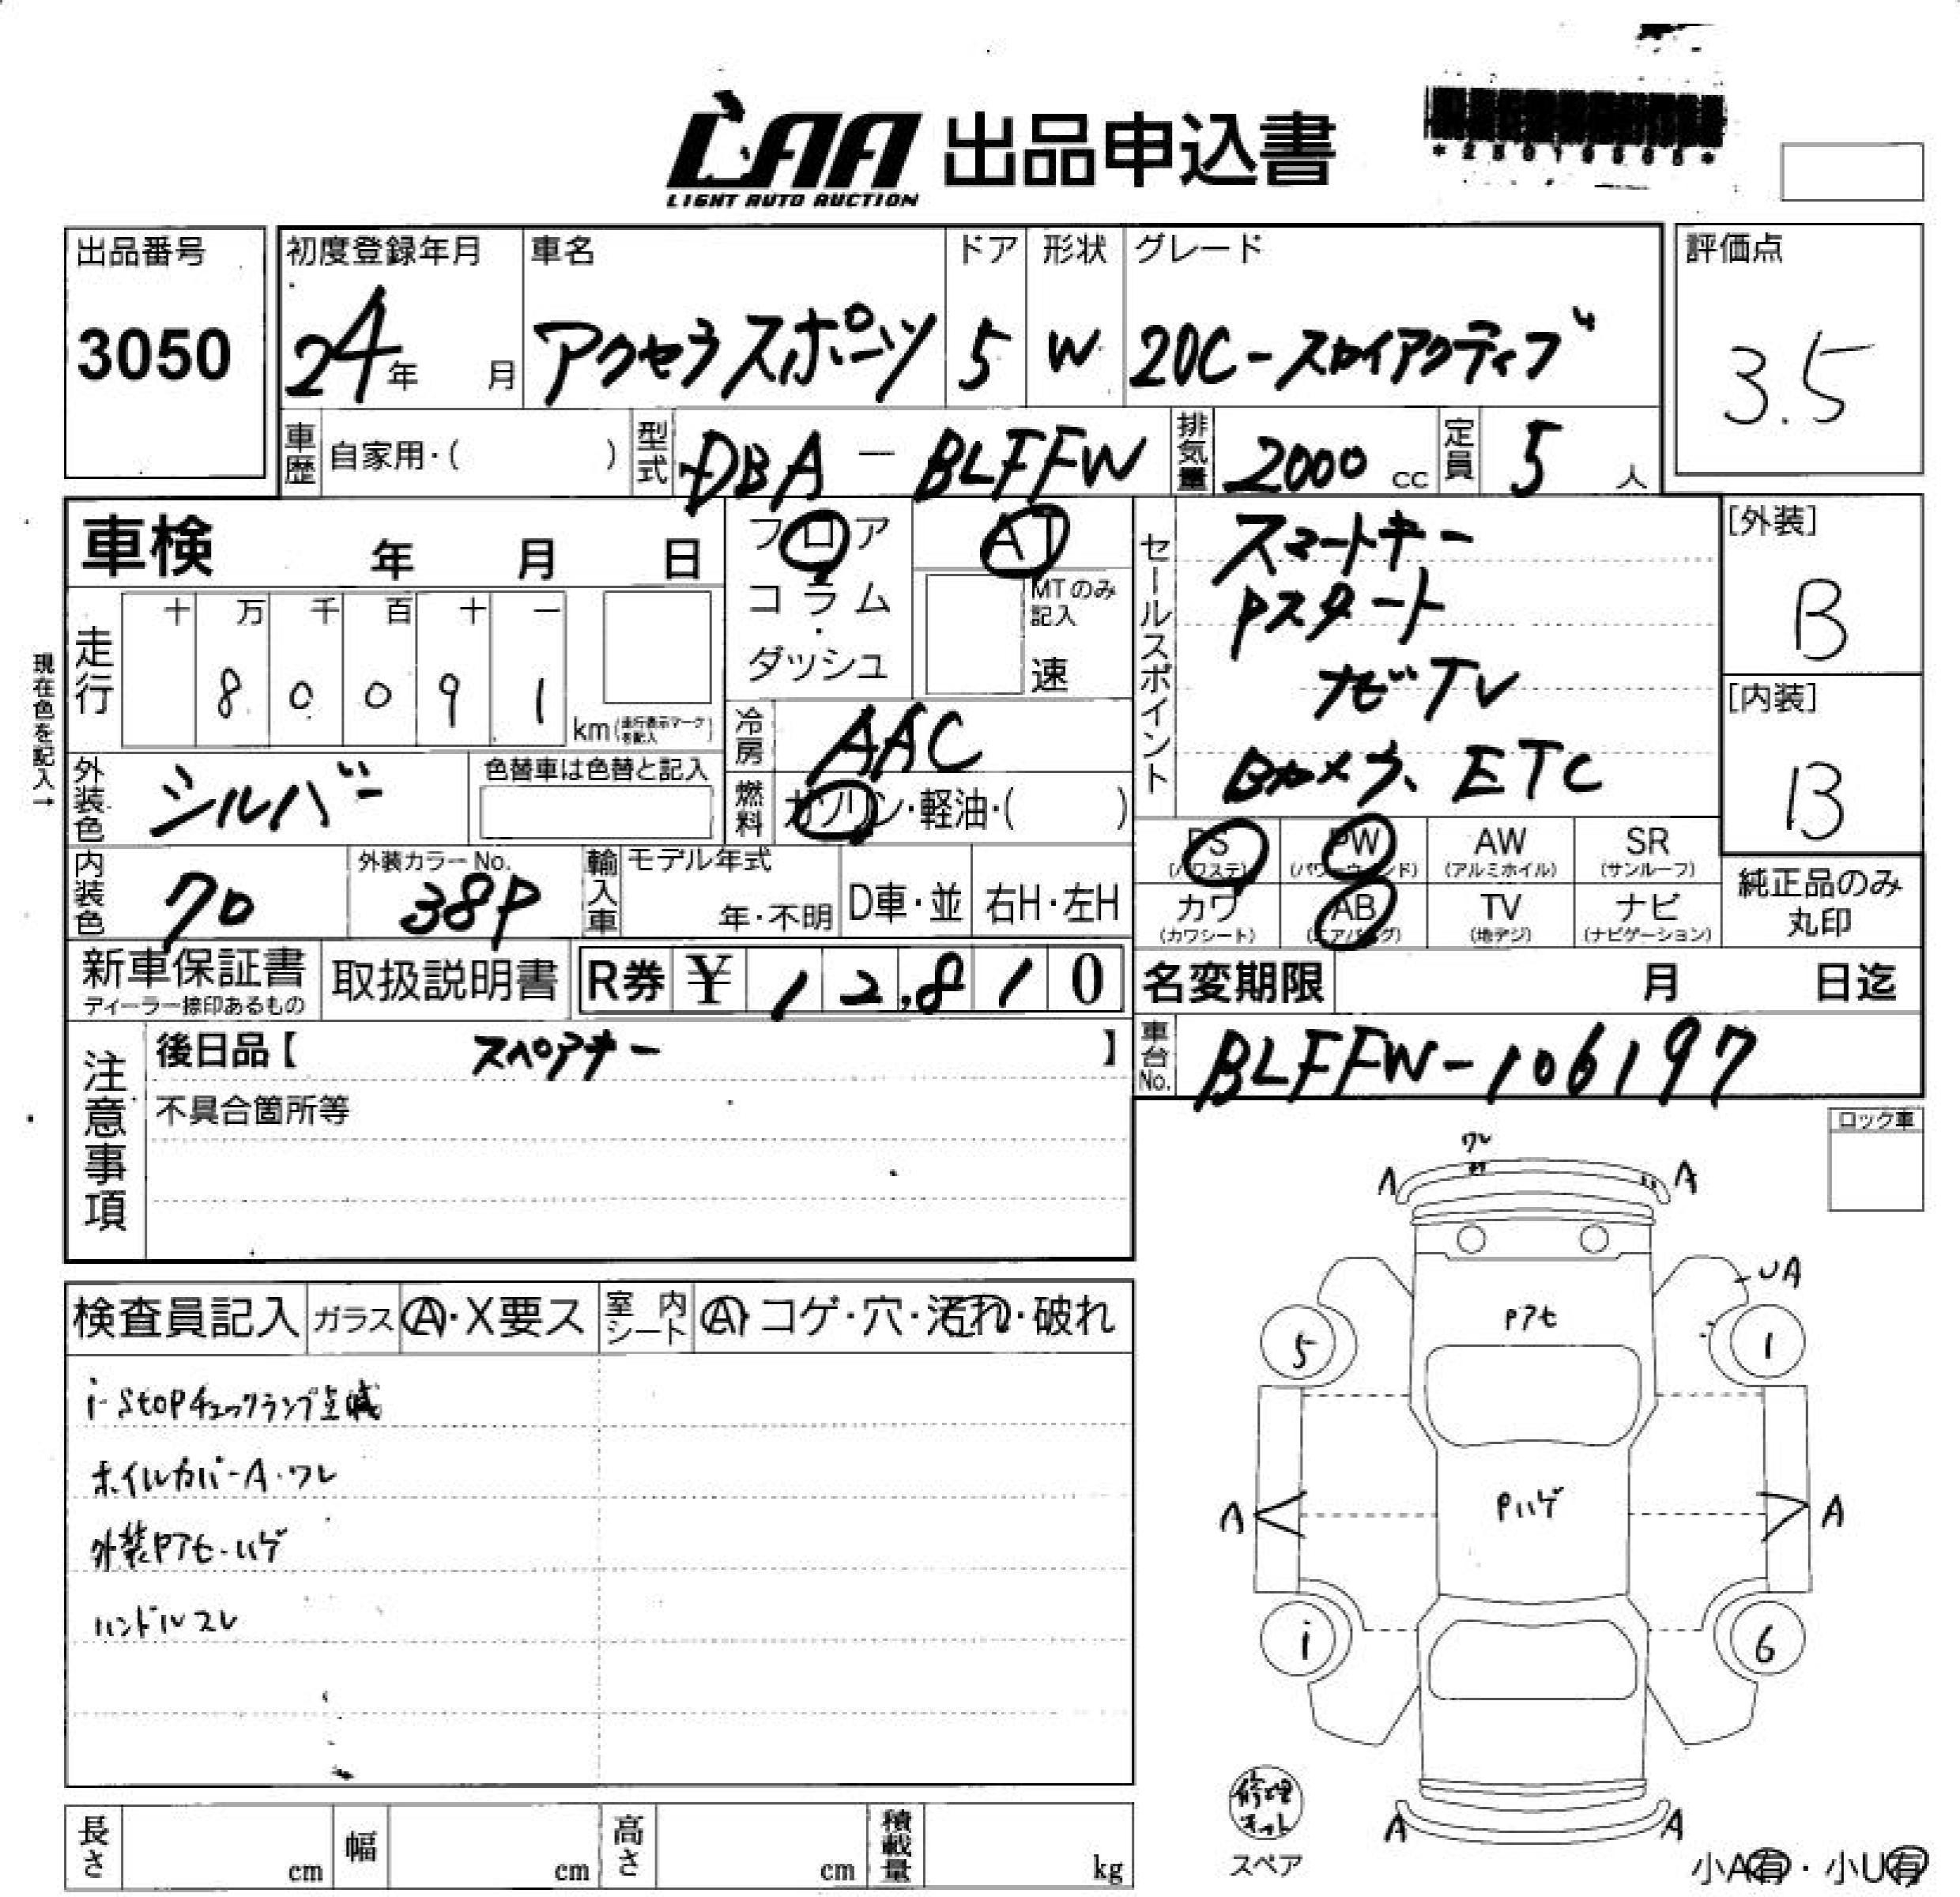 LAA 出品申込書
LIGHT AUTO AUCTION
出品番号
3050
初度登録年月
24年 月
車名
アクセラスポーツ
ドア
5
形状
W
グレード
20C-スカイアクティブ
評価点
3.5
車歴 自家用・( )
型式 DBA-BLFFW
排気量 2000 cc
定員 5 人
車検 年 月 日
フロア
コラム
・
ダッシュ
AT
MTのみ
記入
速
セールスポイント
スマートキー
Pスタート
ナビTV
Bカメラ、ETC
[外装]
B
[内装]
B
現在色を記入→
走行
十 万 千 百 十 一
8 0 0 9 1
km(走行表示マークを記入)
冷房 AAC
外装色 シルバー
色替車は色替と記入
燃料 ガソリン・軽油・( )
PS (パワステ)
PW (パワーウィンド)
AW (アルミホイル)
SR (サンルーフ)
カワ (カワシート)
AB (エアバッグ)
TV (地デジ)
ナビ (ナビゲーション)
純正品のみ
丸印
内装色 クロ
外装カラーNo.
38P
輸入車
モデル年式
年・不明
D車・並
右H・左H
新車保証書
ディーラー捺印あるもの
取扱説明書
R券 ¥ 12,810
名変期限 月 日迄
注意事項
後日品【 スペアキー 】
不具合箇所等
車台No. BLFFW-106197
ロック車
検査員記入
ガラス A・X要ス
室内シート A・コゲ・穴・汚れ・破れ
i-stopチェックランプ点滅
ホイルカバーA・ワレ
外装Pアセ・ハゲ
ハンドルスレ
ワレ
A
A
UA
Pアセ
5
1
A
Pハゲ
A
i
6
修理キット
スペア
A
A
小A有・小U有
長さ cm
幅 cm
高さ cm
積載量 kg